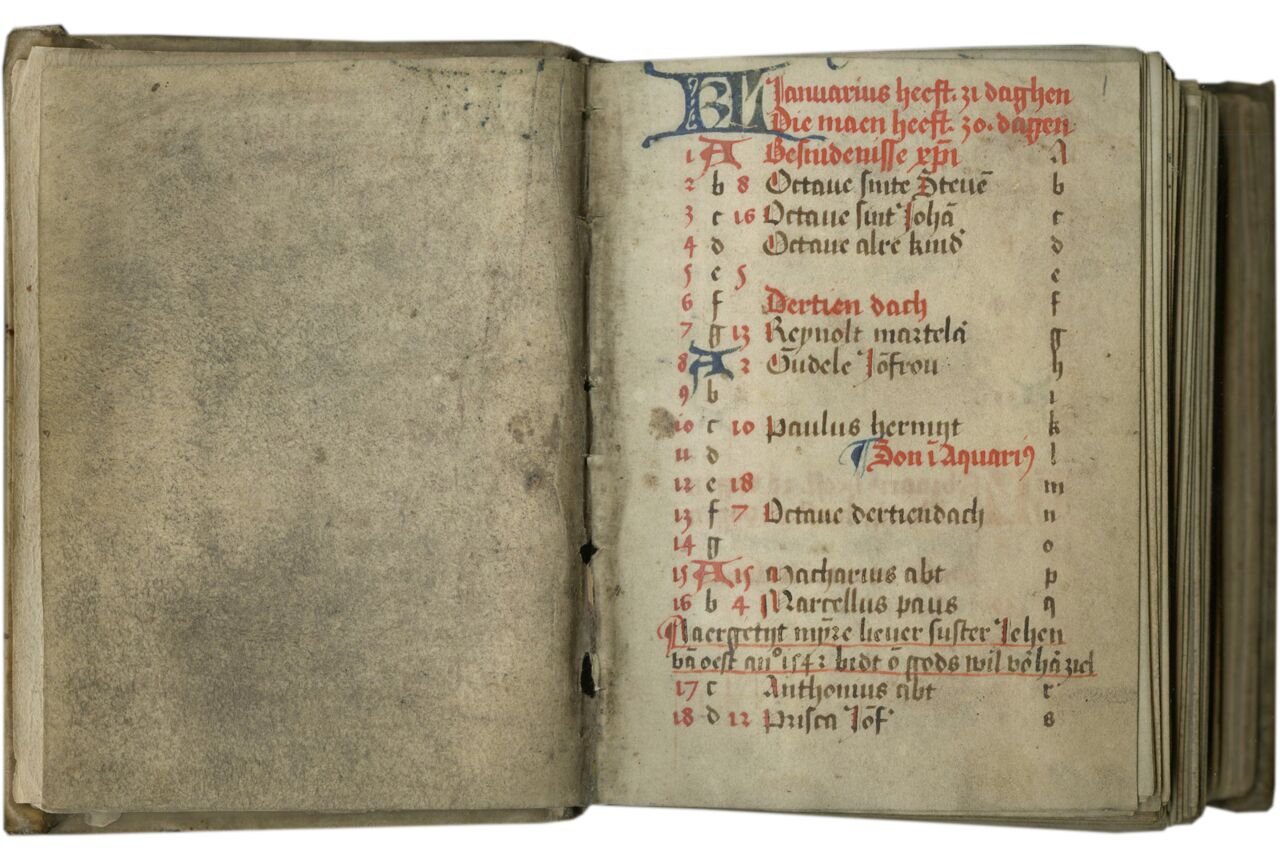 1
KL Januarius heeft. 31 daghen
Die maen heeft. 30. dagen
1 A Besnidenisse xp̄i A
2 b 8 Octaue sinte Steuē b
3 c 16 Octaue sint Johā c
4 d Octaue alre kind' d
5 e 5 e
6 f Dertien dach f
7 g 13 Reynolt martelā g
8 A 2 Gudele Jōfrou h
9 b i
10 c 10 Paulus hermijt k
11 d ¶ Son ī Aquari9 l
12 e 18 m
13 f 7 Octaue dertiendach n
14 g o
15 A 15 Macharius abt p
16 b 4 Marcellus paus q
Naergetijt mijre lieuer suster Jehen
vā oest an° 1542 bidt ō gods wil vō hā ziel
17 c Anthonius abt r
18 d 12 Prisca Jōf' s